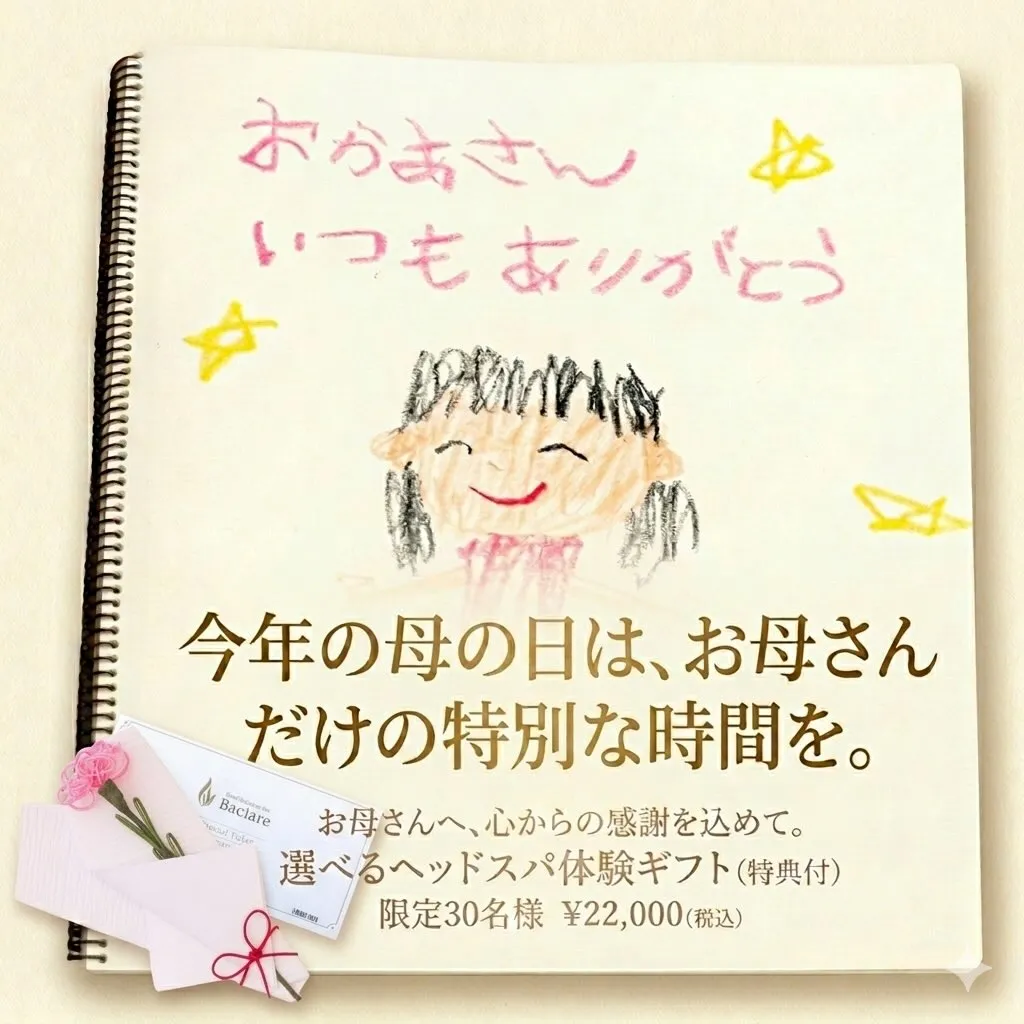 おかあさん
いつもありがとう
今年の母の日は、お母さん
だけの特別な時間を。
Baclare
お母さんへ、心からの感謝を込めて。
選べるヘッドスパ体験ギフト(特典付)
限定30名様 ¥22,000(税込)